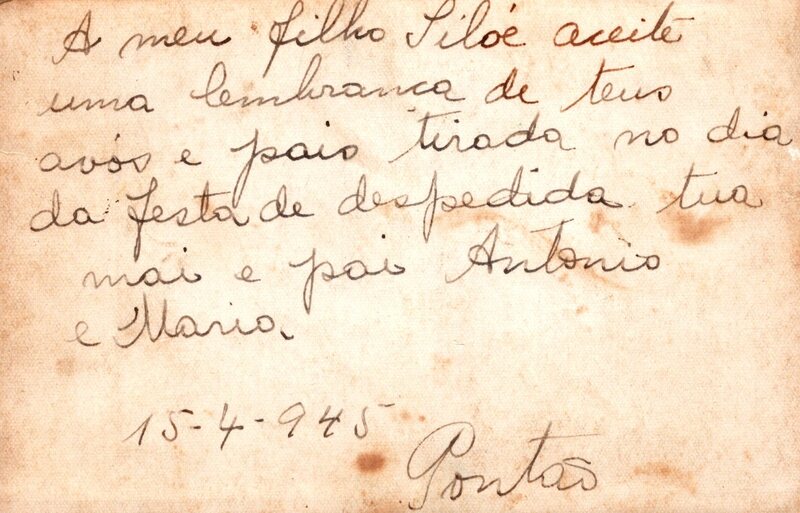 A meu filho Siloé aceite
uma lembranca de teus
avós e pais tirada no dia
da festa de despedida tua
mai e pai Antonio
e Maria.
15-4-945
Pontão